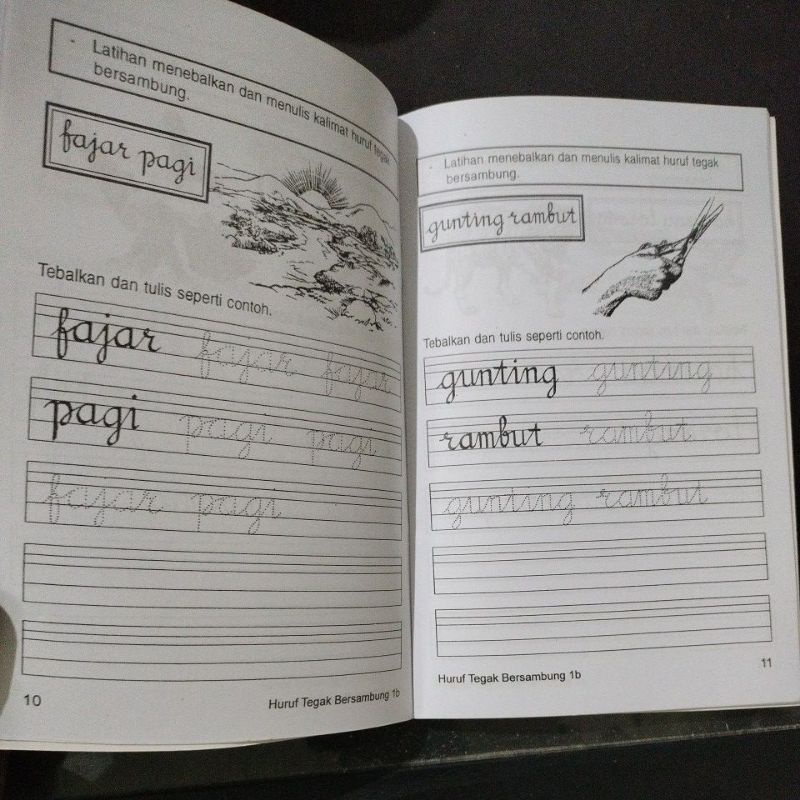 - Latihan menebalkan dan menulis kalimat huruf tegak
bersambung.
fajar pagi
Tebalkan dan tulis seperti contoh.
fajar fajar fajar
pagi pagi pagi
fajar pagi
10
Huruf Tegak Bersambung 1b
- Latihan menebalkan dan menulis kalimat huruf tegak
bersambung.
gunting rambut
Tebalkan dan tulis seperti contoh.
gunting gunting
rambut rambut
gunting rambut
Huruf Tegak Bersambung 1b
11